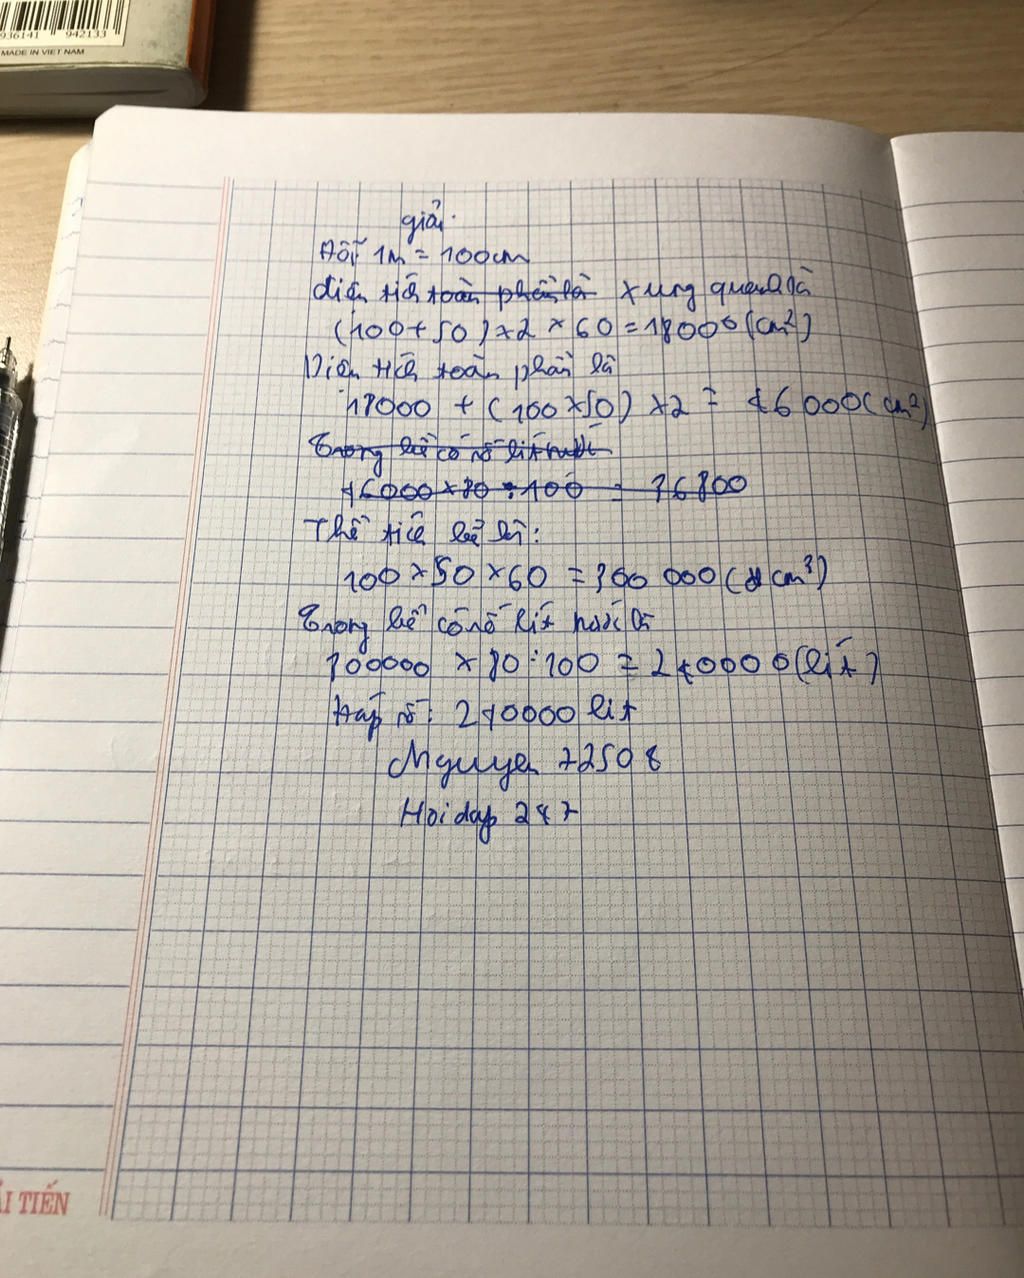 936141 942133
MADE IN VIET NAM
giải.
Đổi 1m = 100cm
diện tích toàn phần là xung quanh là
(100+50) x 2 x 60 = 18000 (cm²)
Diện tích toàn phần là
18000 + (100 x 50) x 2 = 46000 (cm²)
Trong bể có số lít nước
46000 x 80 : 100 = 36800
Thể tích bể là:
100 x 50 x 60 = 300 000 (cm³)
Trong bể có số lít nước là
300000 x 80 : 100 = 240000 (lít)
Đáp số: 240000 lít
Nguyen 72508
Hoidap 247
ẢI TIẾN